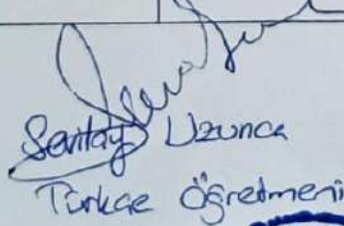 Sevitay Uzunca
Türkçe Öğretmeni